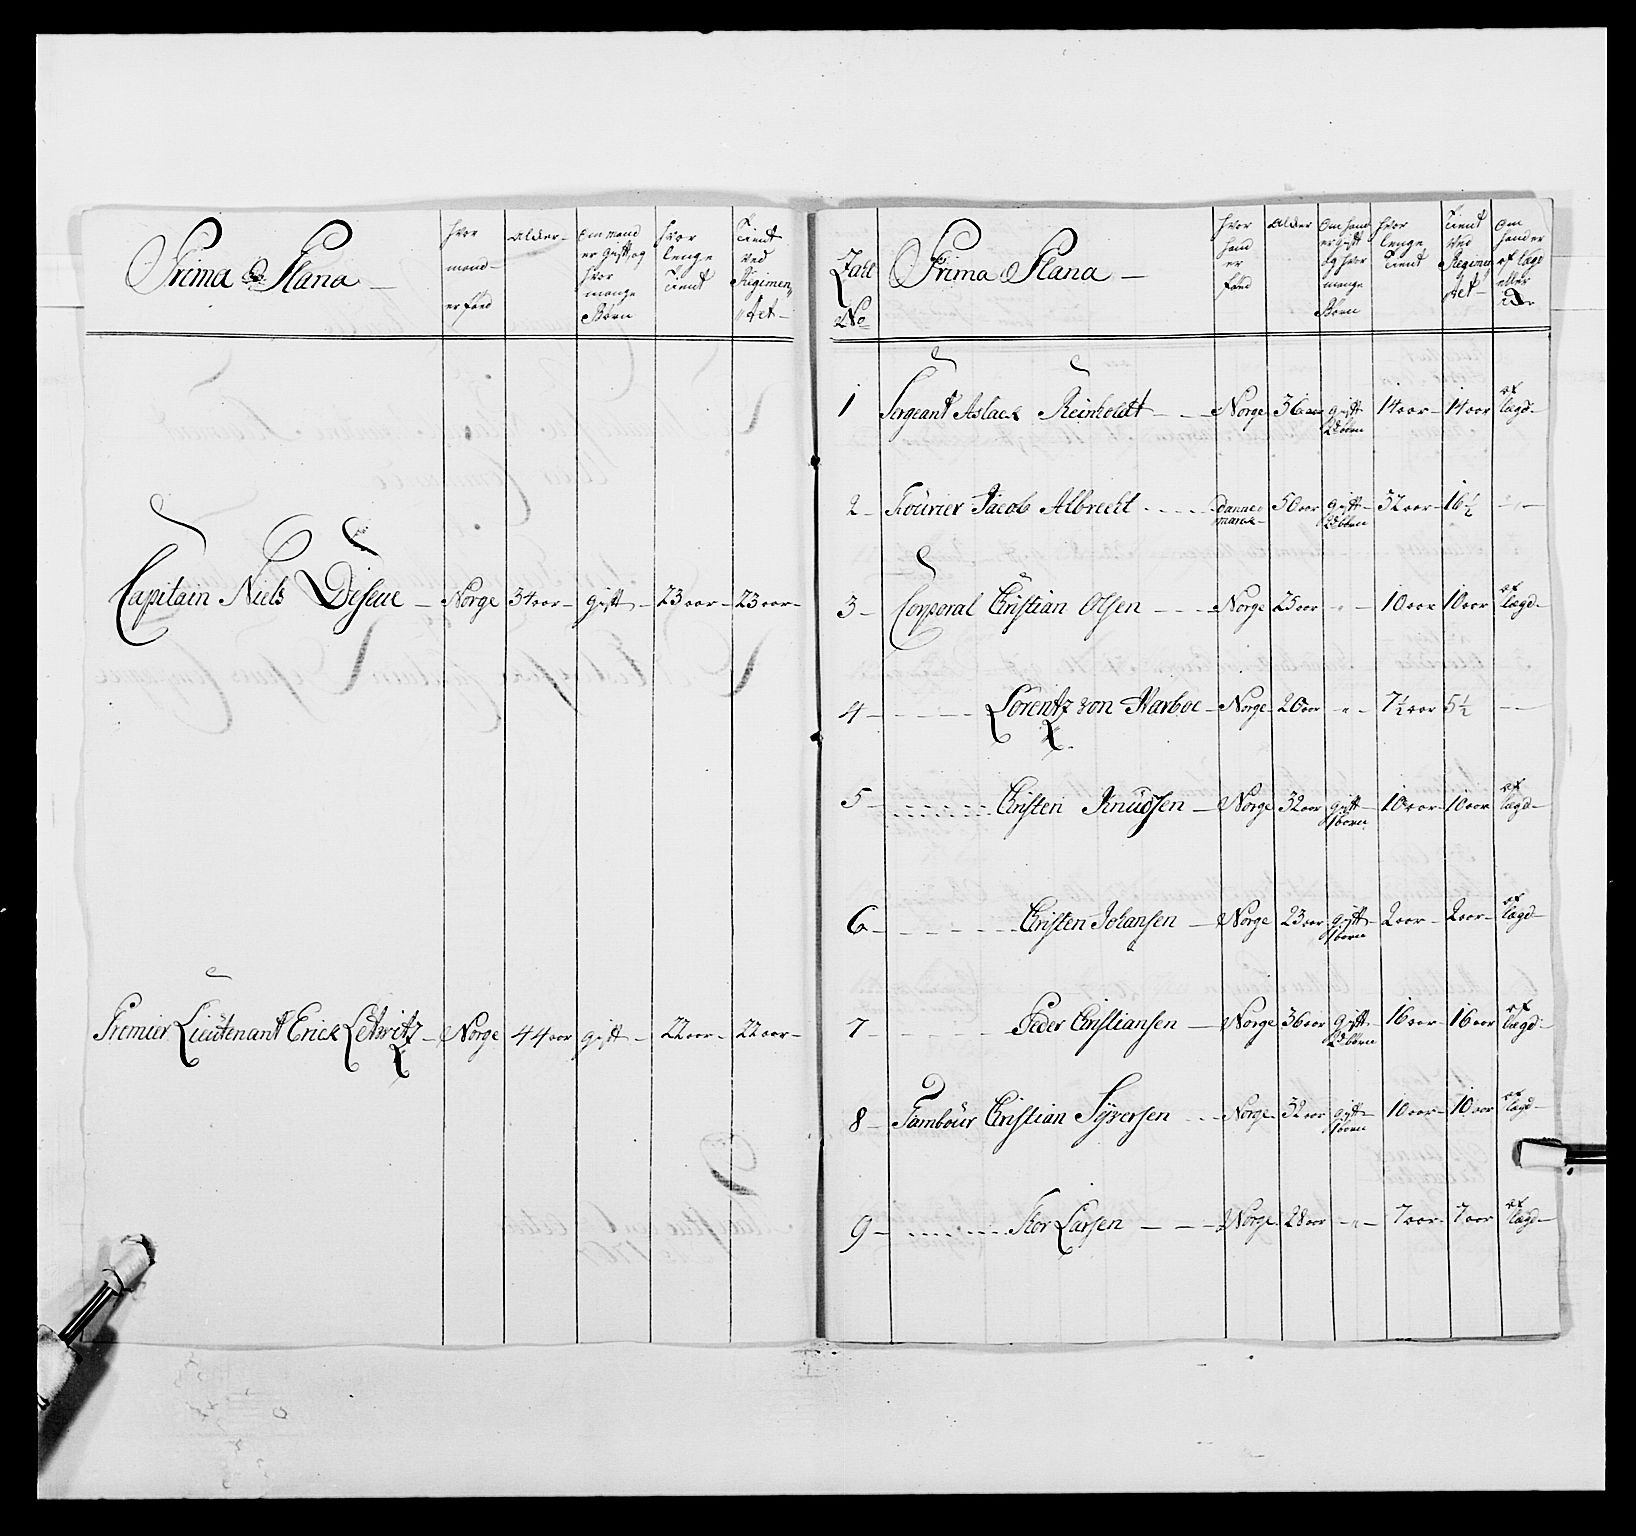 Prima Plana —
hvor
mand
er föed
Alder
Om mand
er gift, og
hvor
mange
Börn
hvor
lenge
Tient
Tient
ved
Regimen„
tet
Capitain Niels — Norge 34 aar — gift — 23 aar — 23 aar —
Premier Lieutenant Erick — Norge 44 aar gift — 22 aar — 22 aar —
No
Prima Plana —
hvor
hand
er
föed
Alder
Om hand
er gift
og hvor
mange
Börn
hvor
lenge
Tient
Tient
ved
Regimen
tet
Om
hand er
af lægd
eller
1 Sergeant Aslack Reinholdt — Norge 36 aar gift 14 aar — 14 aar af
2 börn lægd —
2 — Jacob Albrecht — Danne 50 aar gift 32 aar — 16½ —
marck — börn
3 — Corporal Christian Olsen — Norge 25 aar — 10 aar 10 aar af
lægd —
4 — Lorentz von — Norge 20 aar — 7½ aar 5½ —
5 — Christen Knudsen — Norge 32 aar gift 10 aar — 10 aar af
börn lægd —
6 — Christen Johansen — Norge 23 aar gift 2 aar — 2 aar — af
börn lægd —
7 — Peder Christiansen — Norge 36 aar gift 16 aar — 16 aar af
börn lægd —
8 — Tambour Christian Syversen — Norge 32 aar gift 10 aar — 10 aar af
börn lægd —
9 — Tor Larsen — Norge 28 aar — 7 aar — 7 aar af
lægd —